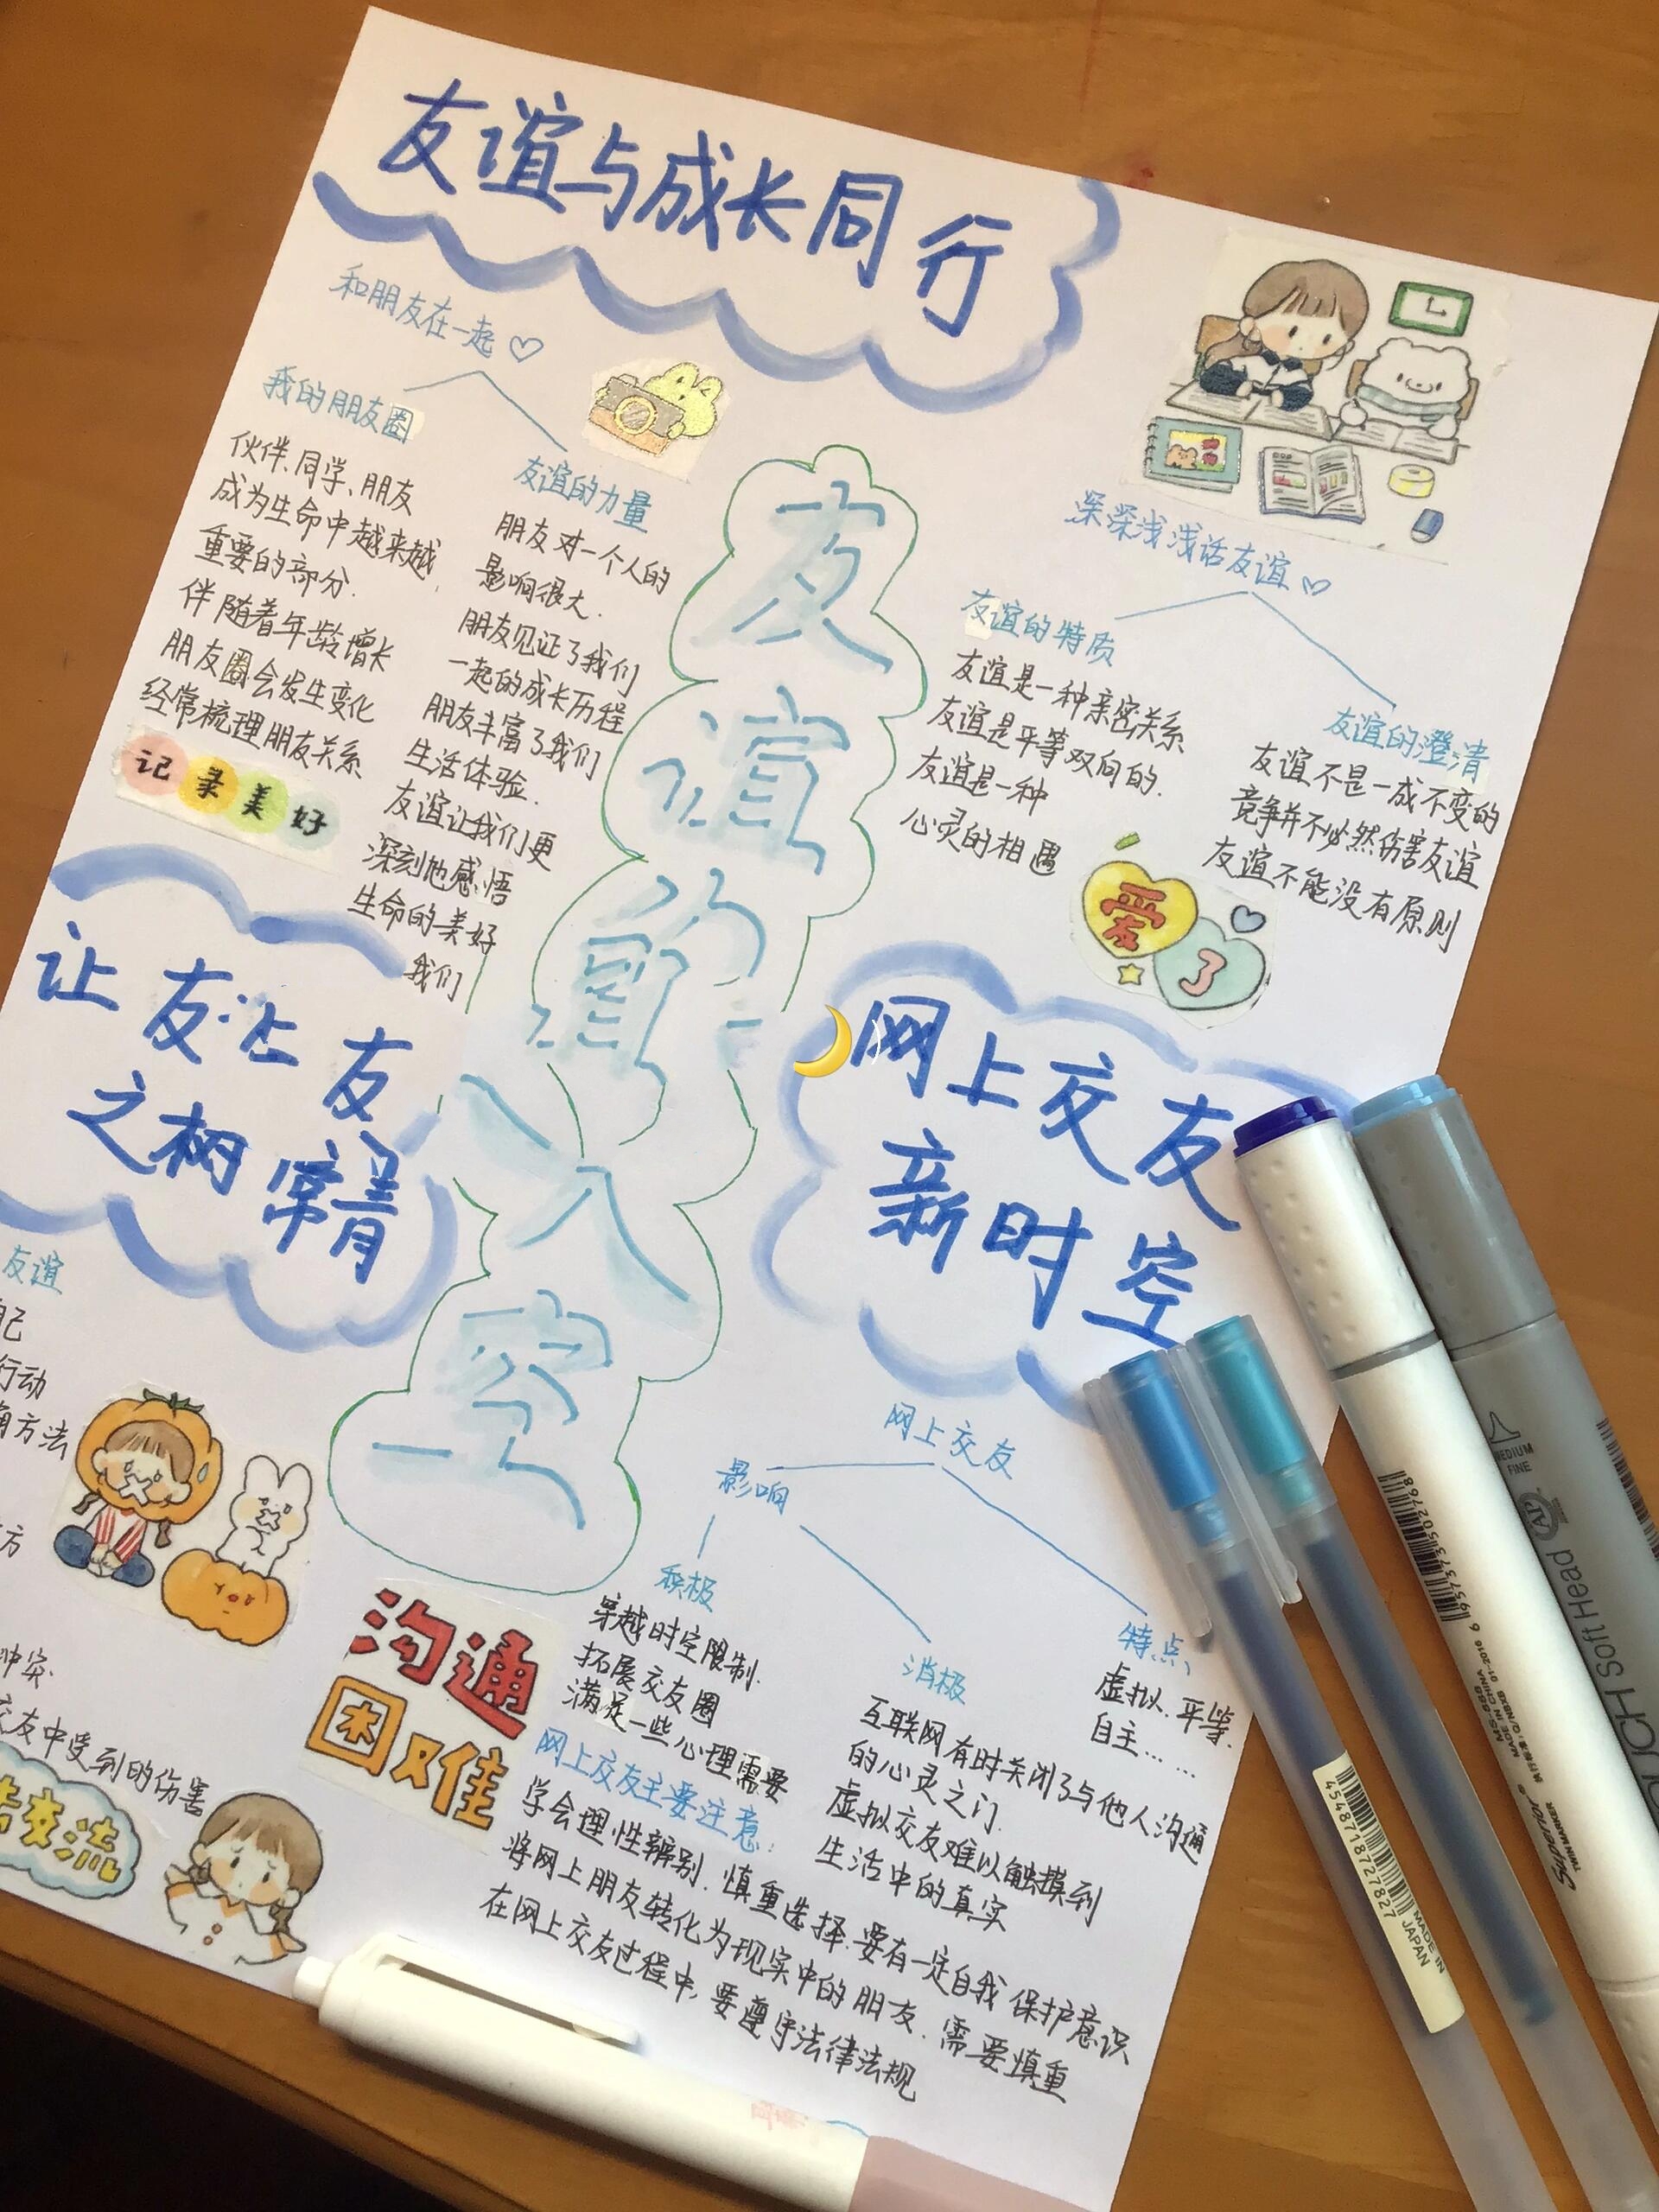 友谊与成长同行
和朋友在一起
我的朋友圈
伙伴、同学、朋友
成为生命中越来越
重要的部分.
伴随着年龄增长
朋友圈会发生变化
经常梳理朋友关系
记录美好
友谊的力量
朋友对一个人的
影响很大.
朋友见证了我们
一起的成长历程
朋友丰富了我们
生活体验.
友谊让我们更
深刻地感悟
生命的美好
我们
友谊的
天空
深深浅浅话友谊
友谊的特质
友谊是一种亲密关系
友谊是平等双向的.
友谊是一种
心灵的相遇
友谊的澄清
友谊不是一成不变的
竞争并不必然伤害友谊
友谊不能没有原则
爱了
让友
让友
之树常青
友谊
自己
行动
方法
方
冲突.
交友中受到的伤害
交流
沟通
困难
网上交友
新时空
网上交友
影响
积极
穿越时空限制.
拓展交友圈
满足一些心理需要
消极
互联网有时关闭了与他人沟通
的心灵之门.
虚拟交友难以触摸到
生活中的真实
特点、
虚拟.平等.
自主……
网上交友主要注意:
学会理性辨别.慎重选择.要有一定自我保护意识
将网上朋友转化为现实中的朋友.需要慎重
在网上交友过程中,要遵守法律法规
MEDIUM
FINE
Soft Head
6957373502768
MADE IN CHINA
Superior
TWIN MARKER
4548718727827
MADE IN
JAPAN